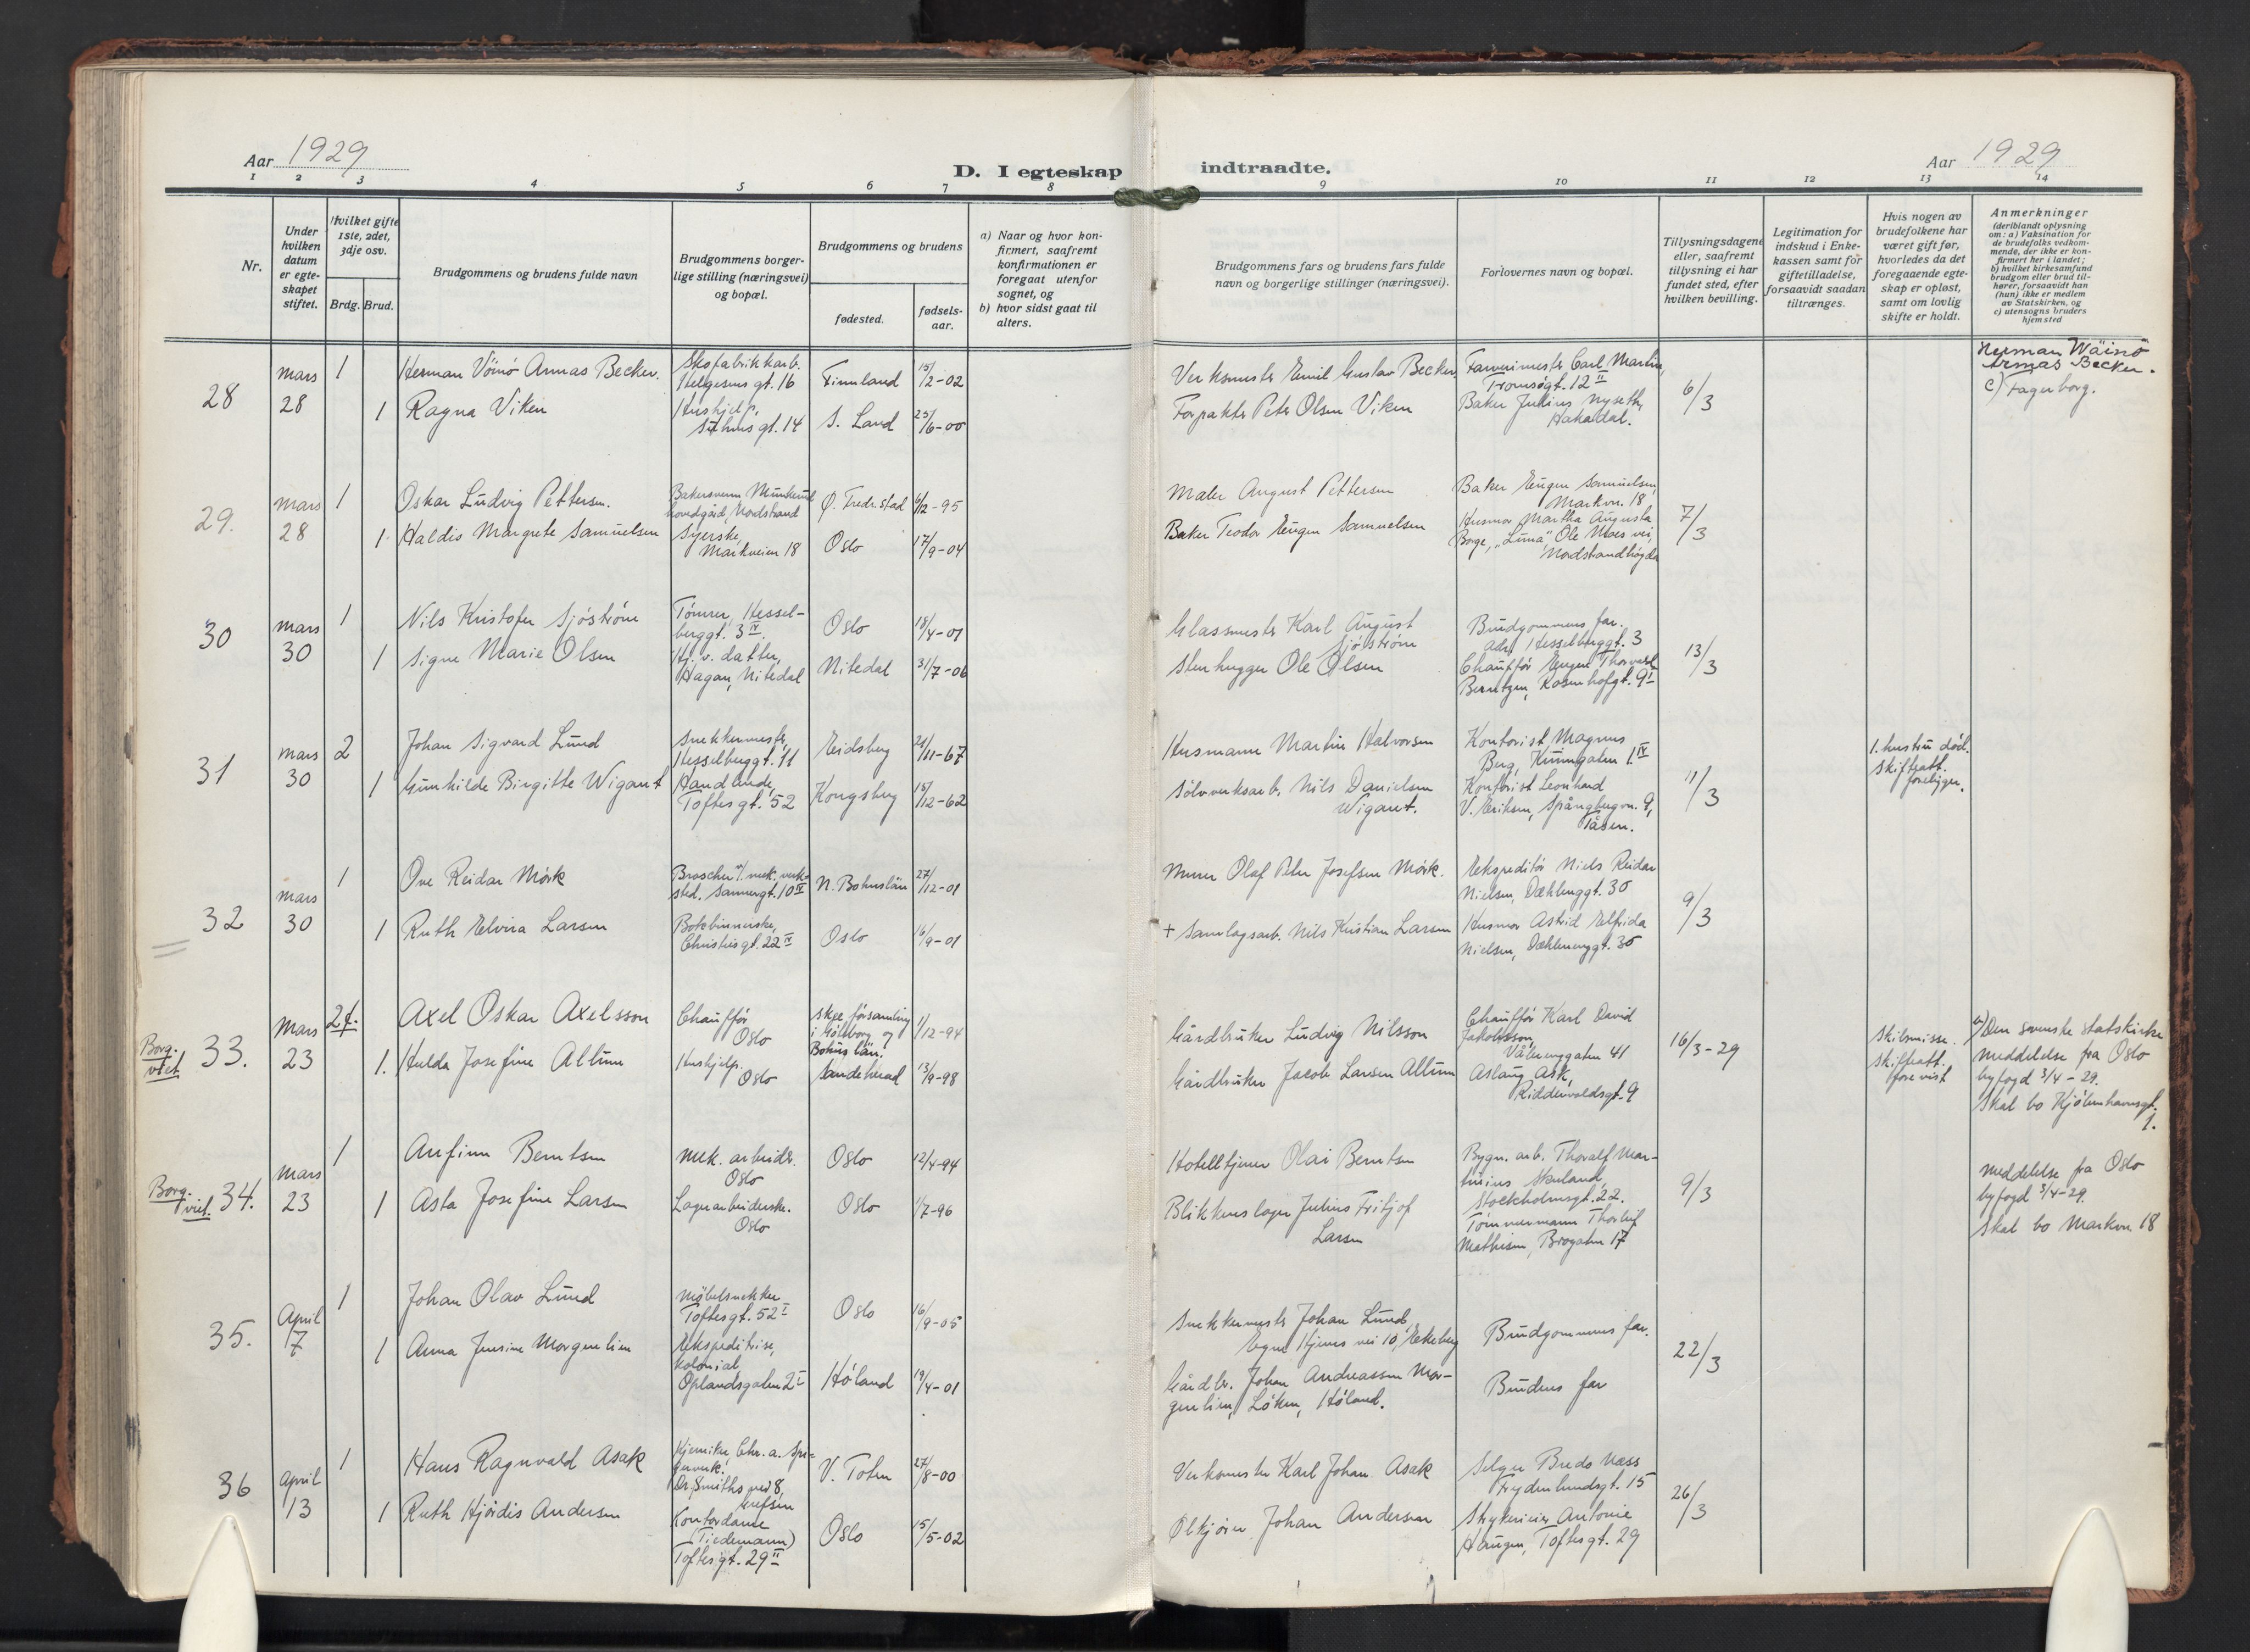 Aar 1929
D. I egteskap indtraadte.
Aar 1929
1 2 3 4 5 6 7 8 9 10 11 12 13 14
Nr.
Under
hvilken
datum
er egte-
skapet
stiftet.
Hvilket gifte
1ste, 2det,
3dje osv.
Brdg. Brud.
Brudgommens og brudens fulde navn
Brudgommens borger-
lige stilling (næringsvei)
og bopæl.
Brudgommens og brudens
fødested.
fødsels-
aar.
a) Naar og hvor kon-
firmert, saafremt
konfirmationen er
foregaat utenfor
sognet, og
b) hvor sidst gaat til
alters.
Brudgommens fars og brudens fars fulde
navn og borgerlige stillinger (næringsvei).
Forlovernes navn og bopæl.
Tillysningsdagene
eller, saafremt
tillysning ei har
fundet sted, efter
hvilken bevilling.
Legitimation for
indskud i Enke-
kassen samt for
giftetilladelse,
forsaavidt saadan
tiltrænges.
Hvis nogen av
brudefolkene har
været gift før,
hvorledes da det
foregaaende egte-
skap er opløst,
samt om lovlig
skifte er holdt.
Anmerkninger
(deriblandt oplysning
om: a) Vaksination for
de brudefolks vedkom-
mende, der ikke er kon-
firmert her i landet;
b) hvilket kirkesamfund
brudgom eller brud til-
hører, forsaavidt han
(hun) ikke er medlem
av Statskirken, og
c) utensogns bruders
hjemsted
28
Mars
28
1
Herman Vöinö Armas Becker.
Skofabrikkarb.
Helgesens gt. 16
Finnland
15/2-02
Verksmester Emil Gustav Becker
Farverimester Carl Martin,
Tromsøgt. 12 II
6/3
Herman Wäinö
Armas Becker.
c) Fagerborg.
1
Ragna Viken
Hushjelp,
gt. 14
S. Land
25/6-00
Forpakter Peter Olsen Viken
Baker Julius Nyseth,
Hakadal.
29.
Mars
28
1
Oskar Ludvig Pettersen.
Bakersvenn, Munkerud
hovedgård, Nordstrand
Ø. Fredr.stad
6/12-95
Maler August Pettersen
Baker Eugen Samuelsen,
Markvn. 18
7/3
1
Haldis Margrete Samuelsen
Syerske,
Markveien 18
Oslo
17/9-04
Baker Teodor Eugen Samuelsen
Husmor Martha Augusta
Borge, "Luna" Ole Moes vei,
Nordstrandhøgda
30
Mars
30
1
Nils Kristofer Sjöström
Tömrer, Hessel-
berggt. 3 IV.
Oslo
18/4-01
Glassmester Karl August
Sjöström
Brudgommens far.
adr. Hesselberggt. 3
13/3
1
Signe Marie Olsen
Hj.v. datter,
Hagan, Nitedal
Nitedal
31/7-06
Stenhugger Ole Olsen
Chauffør Eugen Thorvald
Berntzen, Rosenhofgt. 9 I
31
Mars
30
2
Johan Sigvard Lund
Snekkermester,
Hesselberggt. 11
Eidsberg
21/11-67
Husmann Martin Halvorsen
Kontorist Magnus
Berg, 1 IV
11/3
1. hustru död.
Skifteatt.
foreligger.
1
Gunhilde Birgitte Wigant
Handlende,
Toftesgt. 52
Kongsberg
18/12-62
Sölvverksarb. Nils Danielsen
Wigant.
Kontorist Leonhard
V. Eriksen, Spångbergvn. 9,
Tåsen.
32
Mars
30
1
Ove Reidar Mörk
mek. verk-
sted. Sannergt. 10 II
N. Bohuslän
27/12-01
Murer Olaf Peter Josefsen Mörk.
Ekspeditør Niels Reidar
Nielsen, Dæhlenggt. 35
9/3
1
Ruth Elvira Larsen
Bokbinnerske,
Christiesgt. 22 IV
Oslo
16/9-01
+ Samlagsarb. Nils Kristian Larsen
Husmor Astrid Elfrida
Nielsen, Dæhlenenggt. 35
Borg.
viet
33.
Mars
23
2g.
Axel Oskar Axelsson
Chauffør
Oslo
Skee församling
i Göteborg og
Bohus län.
1/12-94
Gårdbruker Ludvig Nilsson
Chauffør Karl David
Jakobsson,
Vålerenggaten 41
16/3-29
Skilsmisse.
Skifteatt.
forevist
b) Den svenske statskirke
meddelelse fra Oslo
byfogd 3/4-29.
Skal bo Kjöbenhavnsgt.
1.
1.
Hulda Josefine Allum
Hushjelp.
Oslo
Sandeherad
13/9-98
Gårdbruker Jacob Larsen Allum
Aslaug Ask,
Riddervoldsgt. 9
Borg.
viet.
34.
Mars
23
1
Anfinn Berntsen
Mek. arbeider.
Oslo
Oslo
12/4-94
Hotelltjener Olai Berntsen
Bygn. arb. Thoralf Mar-
tinius Skuland,
Stockholmsgt. 22.
9/3
meddelelse fra Oslo
byfogd 3/4-29.
Skal bo Markvn. 18
1
Asta Josefine Larsen
Lagerarbeiderske.
Oslo
Oslo
1/7-96
Blikkenslager Julius Fritjof
Larsen
Tömmermann Thorleif
Mathisen, Brogaten 17
35.
April
7
1
Johan Olav Lund
Møbelsnekker
Toftesgt. 52 I
Oslo
16/9-05
Snekkermester Johan Lund,
Hjems vei 10, Ekeberg
Brudgommens far.
22/3
1
Anna Jensine Morgenlien
Ekspeditrise,
kolonial
Oplandsgaten 2 I
Höland
19/4-01
Gårdbr. Johan Andreassen Mor-
genlien, Löken, Höland.
Brudens far
36
April
13
1
Hans Ragnvald Asak
Kjemiker, Chr.a. Spi-
gerverk.
Dr. Smiths vei 8,
Grefsen
V. Toten
27/8-00
Verksmester Karl Johan Asak
Selger Bredo Næss
Frydenlundsgt. 15
26/3
1
Ruth Hjördis Andersen
Kontordame
(Tiedemann)
Toftesgt. 29 II
Oslo
15/5-02
Ölkjörer Johan Andersen
Antonie
Haugen, Toftesgt. 29